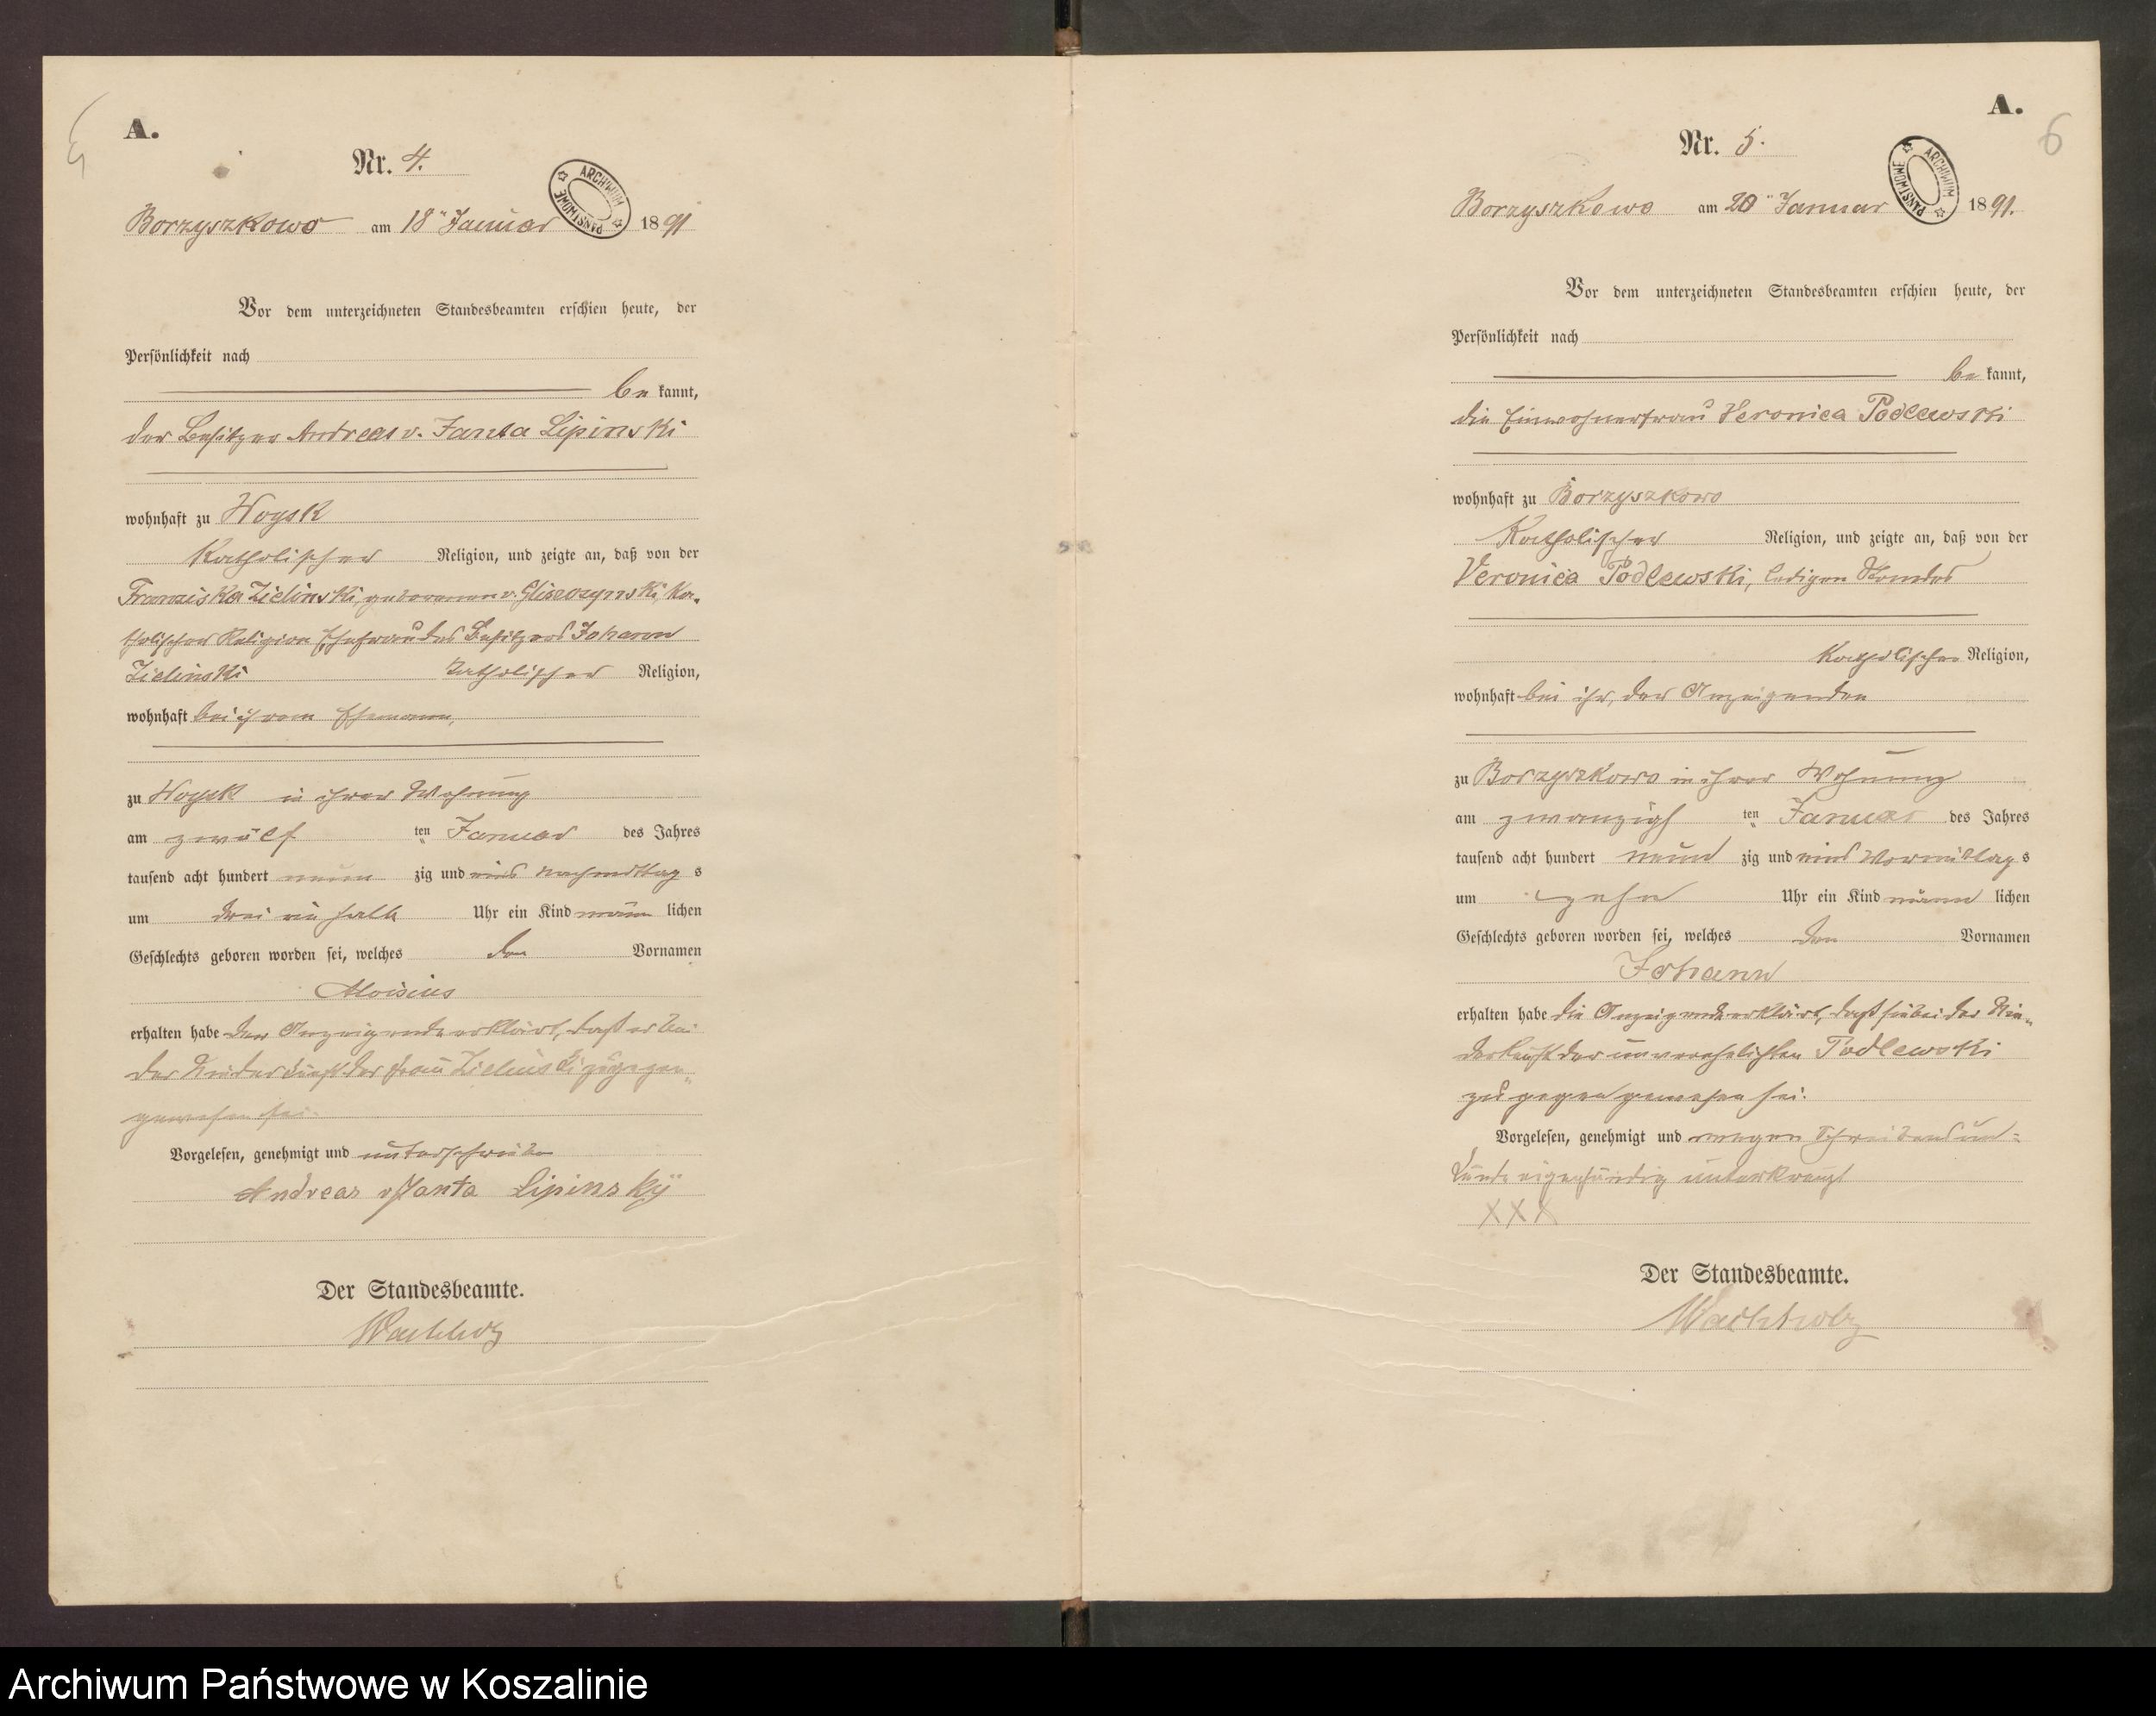 A.
Nr. 4.
ARCHIWUM PAŃSTWOWE
Borzyszkowo am 18 Januar 1891
Vor dem unterzeichneten Standesbeamten erschien heute, der
Persönlichkeit nach
be kannt,
der Besitzer Andreas v. Janta Lipinski
wohnhaft zu Woysk
Katholischer Religion, und zeigte an, daß von der
Franziska Zielinski, geborenen v. Gliszczynski, Ka-
tholischer Religion Ehefrau des Besitzers Johann
Zielinski katholischer Religion,
wohnhaft bei ihrem Ehemann,
zu Woysk in ihrer Wohnung
am zwölf ten Januar des Jahres
tausend acht hundert neun zig und eins nachmittag s
um drei ein halb Uhr ein Kind männ lichen
Geschlechts geboren worden sei, welches den Vornamen
Aloisius
erhalten habe Der Anzeigende erklärt, daß er bei
der Niederkunft der Frau Zielinski zugegen
gewesen sei.
Vorgelesen, genehmigt und unterschrieben
Andreas v Janta Lipinsky
Der Standesbeamte.
Wachholz
A.
6
Nr. 5.
ARCHIWUM PAŃSTWOWE
Borzyszkowo am 20 Januar 1891.
Vor dem unterzeichneten Standesbeamten erschien heute, der
Persönlichkeit nach
be kannt,
die Einwohnerfrau Veronica Podlewski
wohnhaft zu Borzyszkowo
Katholischer Religion, und zeigte an, daß von der
Veronica Podlewski, ledigen Standes
Katholischer Religion,
wohnhaft bei ihr, der Anzeigenden
zu Borzyszkowo in ihrer Wohnung
am zwanzigs ten Januar des Jahres
tausend acht hundert neun zig und eins Vormittag s
um zehn Uhr ein Kind männ lichen
Geschlechts geboren worden sei, welches den Vornamen
Johann
erhalten habe Die Anzeigende erklärt, daß sie bei der Nie-
derkunft der unverehelichten Podlewski
zugegen gewesen sei.
Vorgelesen, genehmigt und wegen Schreibensun-
kunde eigenhändig unterkreuzt
XXX
Der Standesbeamte.
Wachholz
Archiwum Państwowe w Koszalinie